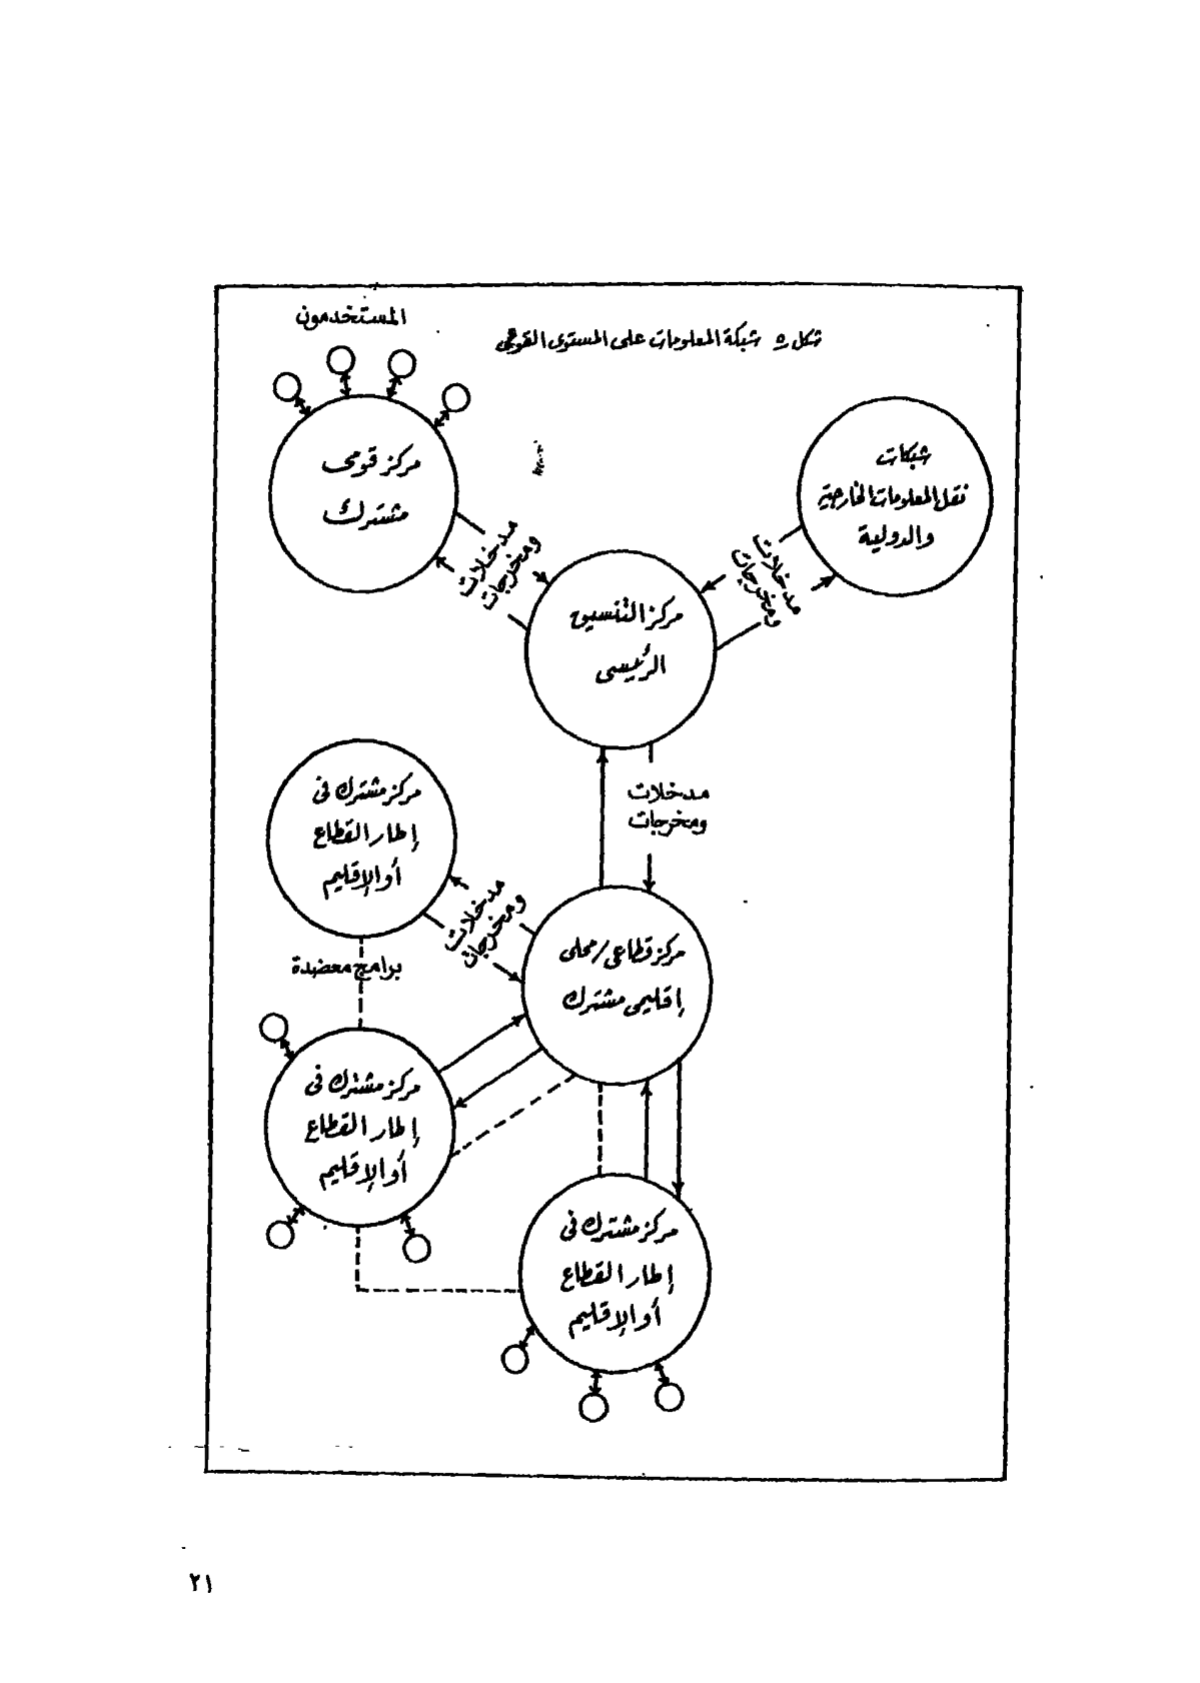 المستخدمون
شكل ٥ شبكة المعلومات على المستوى القومى
مركز قومى
مشترك
شبكات
نقل المعلومات الخارجية
والدولية
مدخلات
ومخرجات
مدخلات
ومخرجات
مركز التنسيق
الرئيسى
مدخلات
ومخرجات
مركز مشترك فى
إطار القطاع
أو الإقليم
مدخلات
ومخرجات
مركز قطاعى/محلى
إقليمى مشترك
برامج معضدة
مركز مشترك فى
إطار القطاع
أو الإقليم
مركز مشترك فى
إطار القطاع
أو الإقليم
٢١